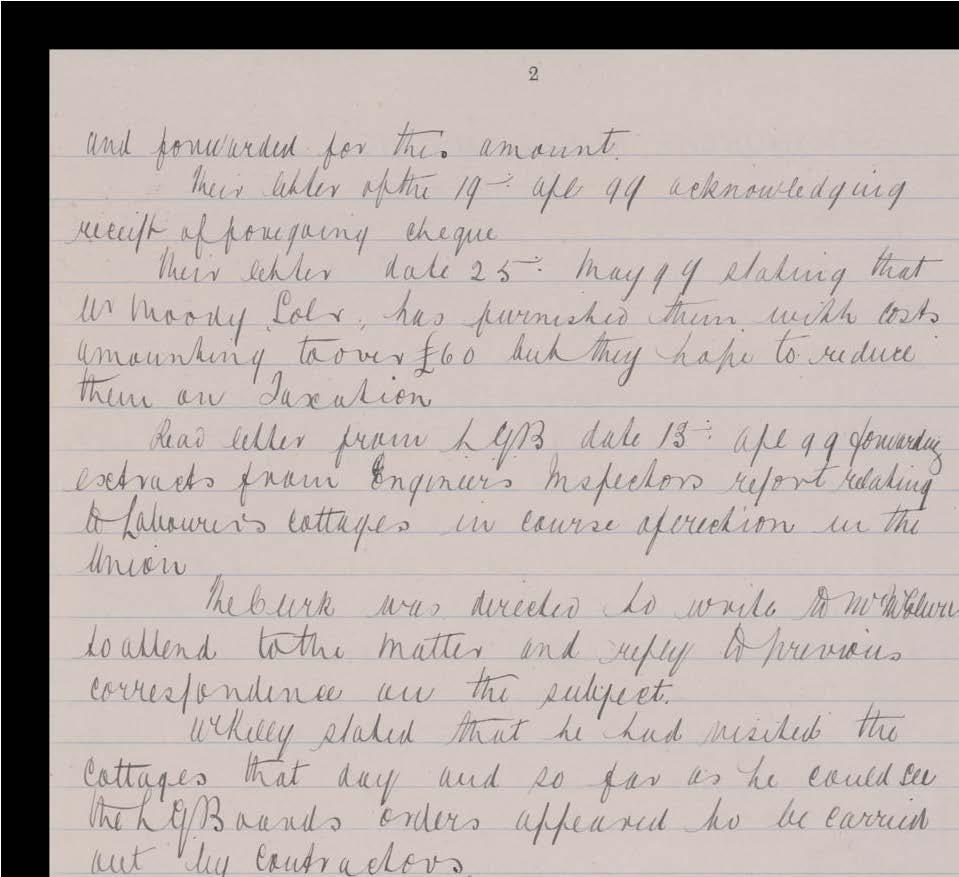 2
and forwarded for this amount.
Their letter of the 19th Apl 99 acknowledging
receipt of foregoing cheque
Their letter date 25th May 99 stating that
Mr Moody Solr, has furnished them with costs
amounting to over £60 but they hope to reduce
them on Taxation
Read letter from LGB date 13th Apl 99 forwarding
extracts from Engineers Inspectors report relating
to Labourers cottages in course of erection in the
Union
The Clerk was directed to write to Mr
to attend to the matter and reply to previous
correspondence on the subject.
Mr Kelly stated that he had visited the
Cottages that day and so far as he could see
the LGB orders appeared to be carried
out by contractors.